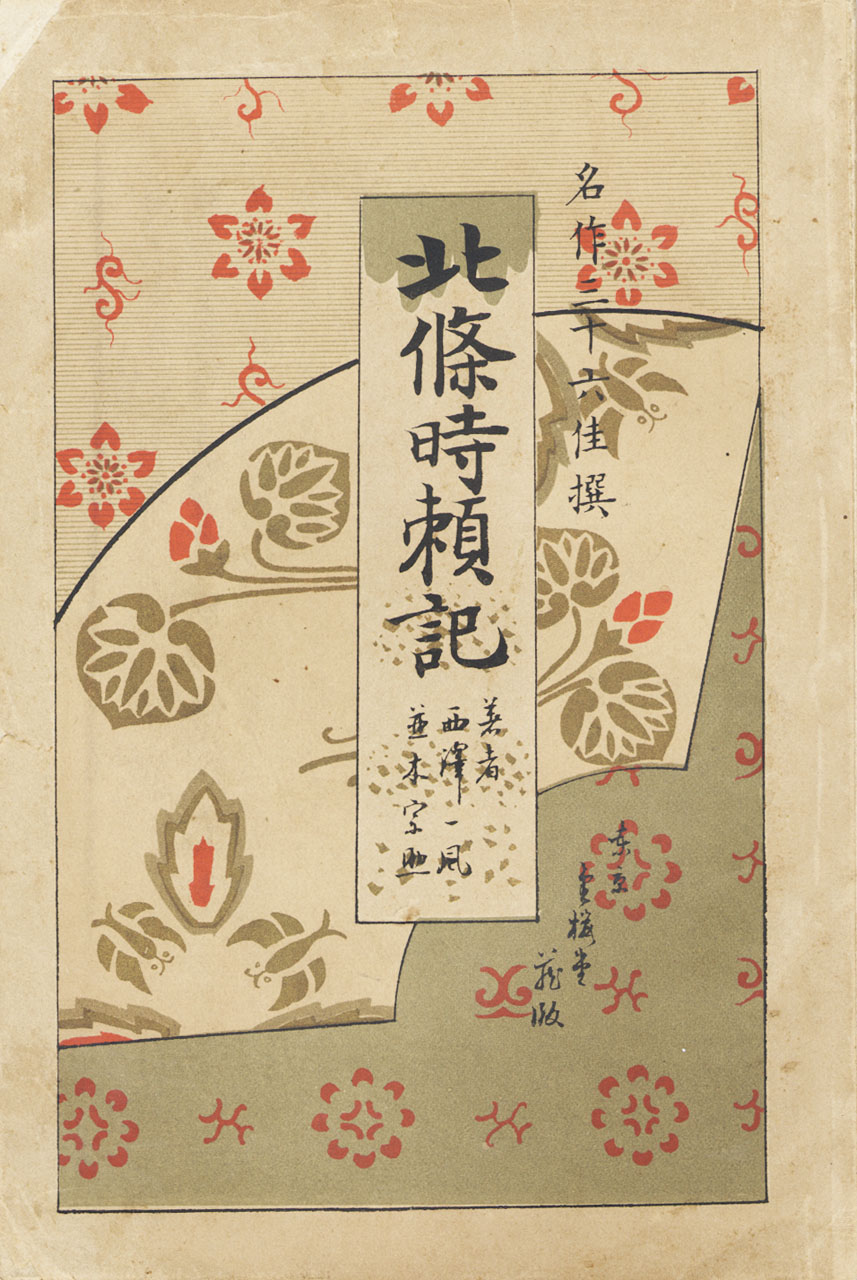 名作三十六佳撰
北條時頼記
著者
西澤一風
並木宗助
東京
金櫻堂
蔵版